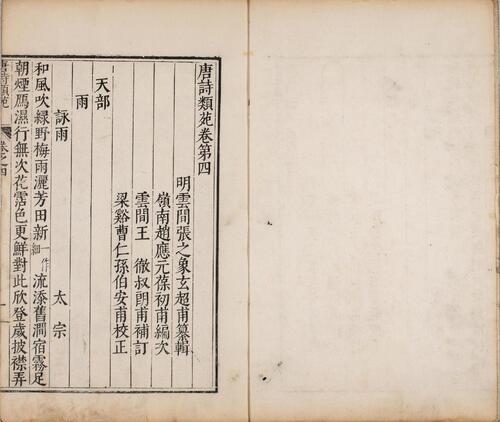 唐詩類苑卷第四
明雲間張之象玄超甫纂輯
嶺南趙應元葆初甫編次
雲間王　徹叔朗甫補訂
梁谿曹仁孫伯安甫校正
天部
雨
詠雨　太宗
和風吹綠野梅雨灑芳田新一作細流添舊澗宿霧足
朝煙鴈濕行無次花霑色更鮮對此欣登歲披襟弄
唐詩類苑
卷之四
一